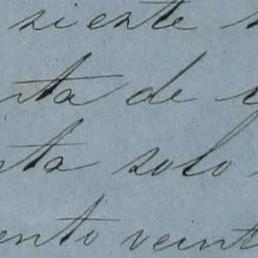 siente
nta de
nta solo
ento veint